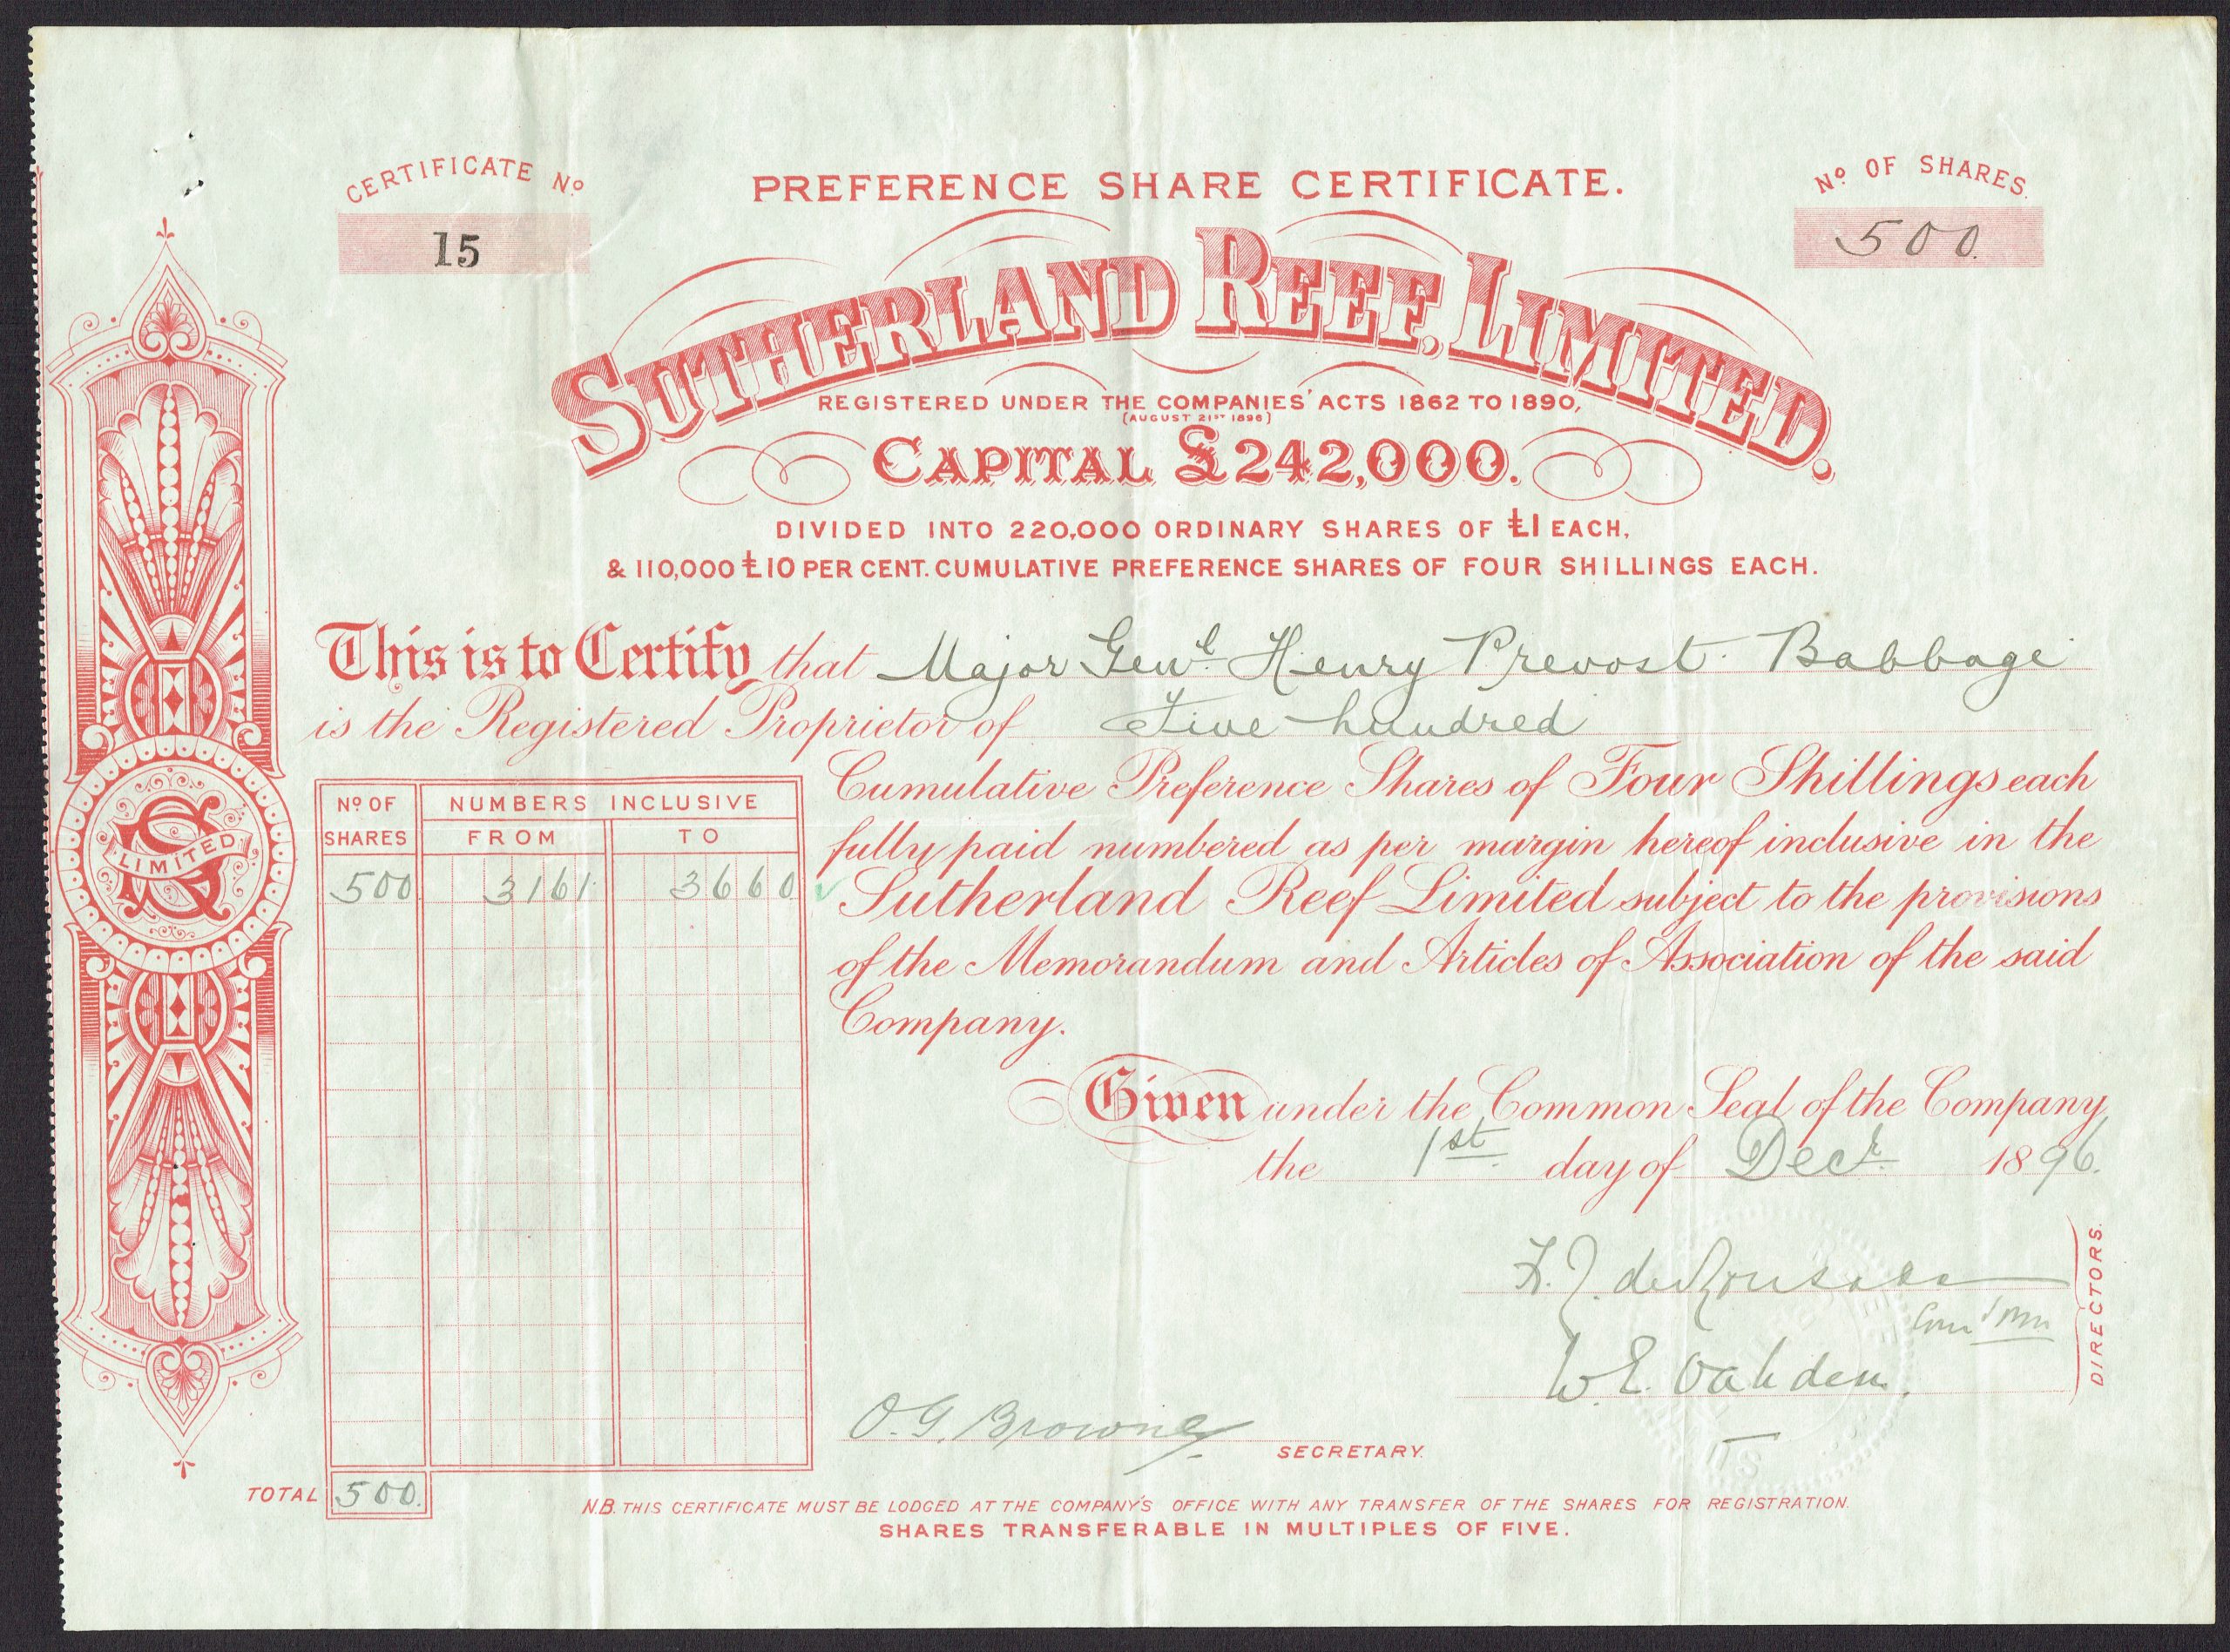 CERTIFICATE No
15
PREFERENCE SHARE CERTIFICATE.
No OF SHARES.
500.
SUTHERLAND REEF, LIMITED.
REGISTERED UNDER THE COMPANIES' ACTS 1862 TO 1890,
(AUGUST 21ST 1896)
CAPITAL £242,000.
DIVIDED INTO 220,000 ORDINARY SHARES OF £1 EACH,
& 110,000 £10 PER CENT. CUMULATIVE PREFERENCE SHARES OF FOUR SHILLINGS EACH.
This is to Certify that Major Genl. Henry Prevost Babbage
is the Registered Proprietor of Five hundred
Cumulative Preference Shares of Four Shillings each
fully paid numbered as per margin hereof inclusive in the
Sutherland Reef Limited subject to the provisions
of the Memorandum and Articles of Association of the said
Company.
No OF SHARES
NUMBERS INCLUSIVE
FROM TO
500 3161 3660
LIMITED
Given under the Common Seal of the Company
the 1st day of Decr. 1896.
W. E. Oakden.
DIRECTORS.
O. G. Browne
SECRETARY.
TOTAL 500.
N.B. THIS CERTIFICATE MUST BE LODGED AT THE COMPANY'S OFFICE WITH ANY TRANSFER OF THE SHARES FOR REGISTRATION.
SHARES TRANSFERABLE IN MULTIPLES OF FIVE.